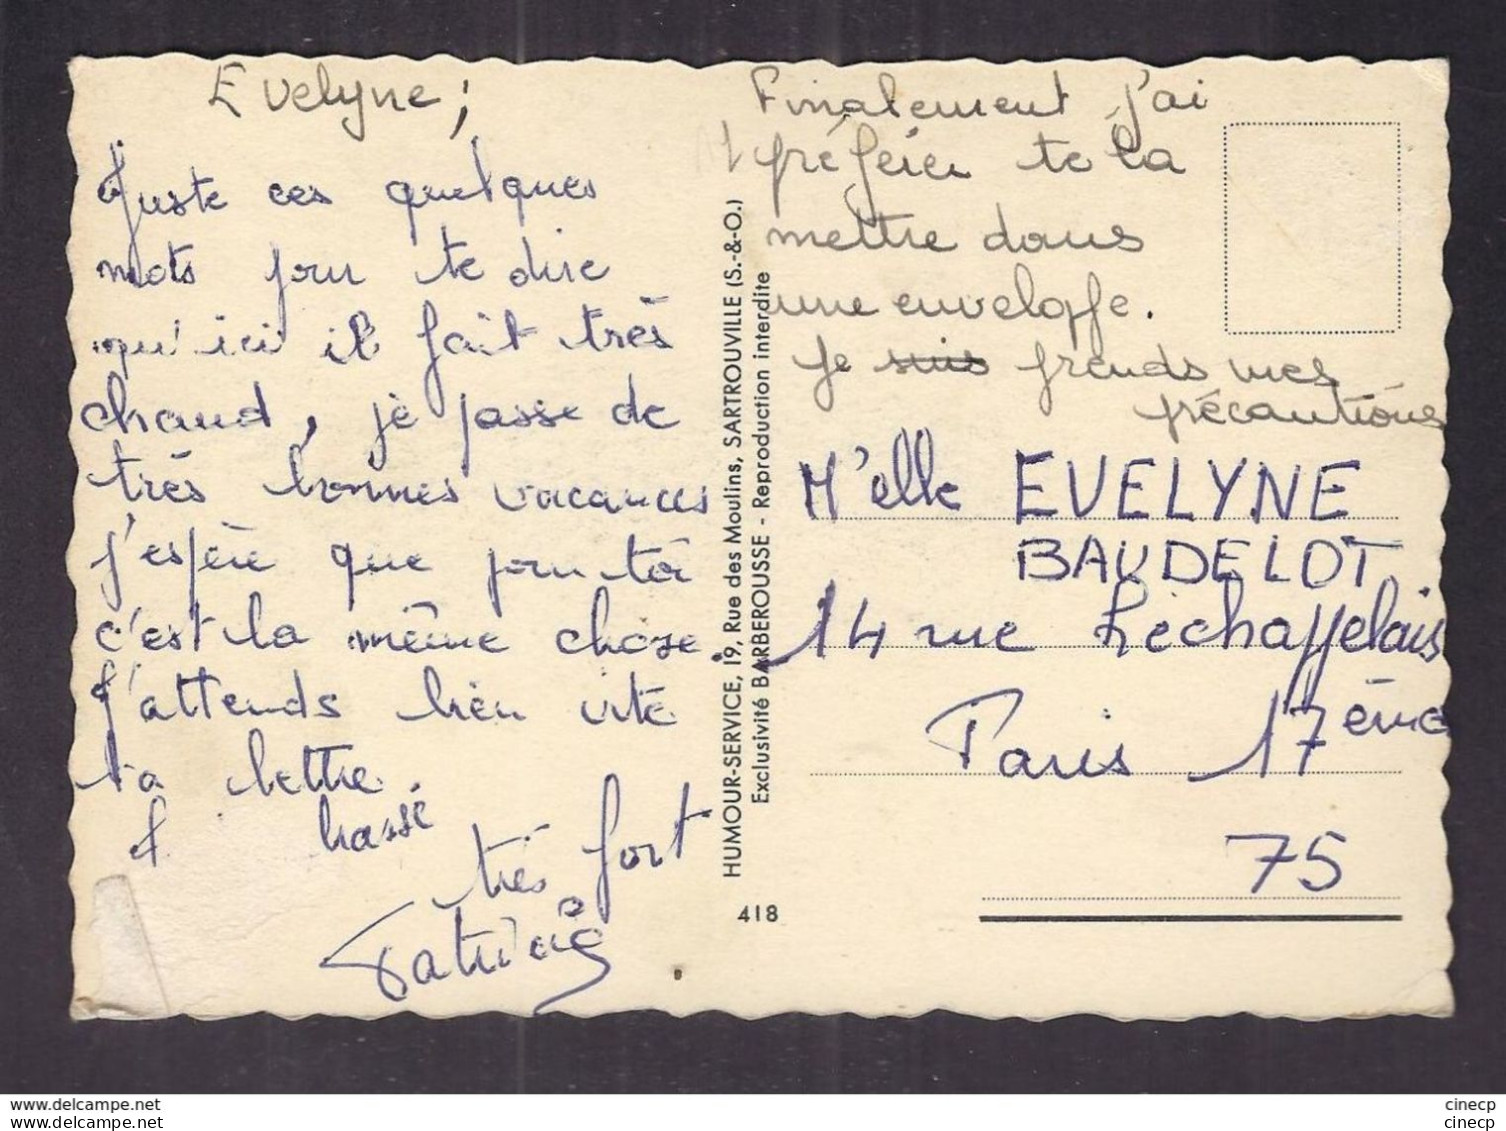 Evelyne;
Juste ces quelques
mots pour te dire
qu'ici il fait très
chaud, je passe de
très bonnes vacances
j'espère que pour toi
c'est la même chose.
J'attends bien vite
ta lettre
très fort
Patricia
HUMOUR-SERVICE, 19, Rue des Moulins, SARTROUVILLE (S.-&-O.)
Exclusivité BARBEROUSSE - Reproduction interdite
418
Finalement j'ai
préférer te la
mettre dans
une enveloppe.
Je suis prends mes
précautions
M'elle EVELYNE
BAUDELOT
14 rue Lechappelais
Paris 17ème
75
cinecp
cinecp